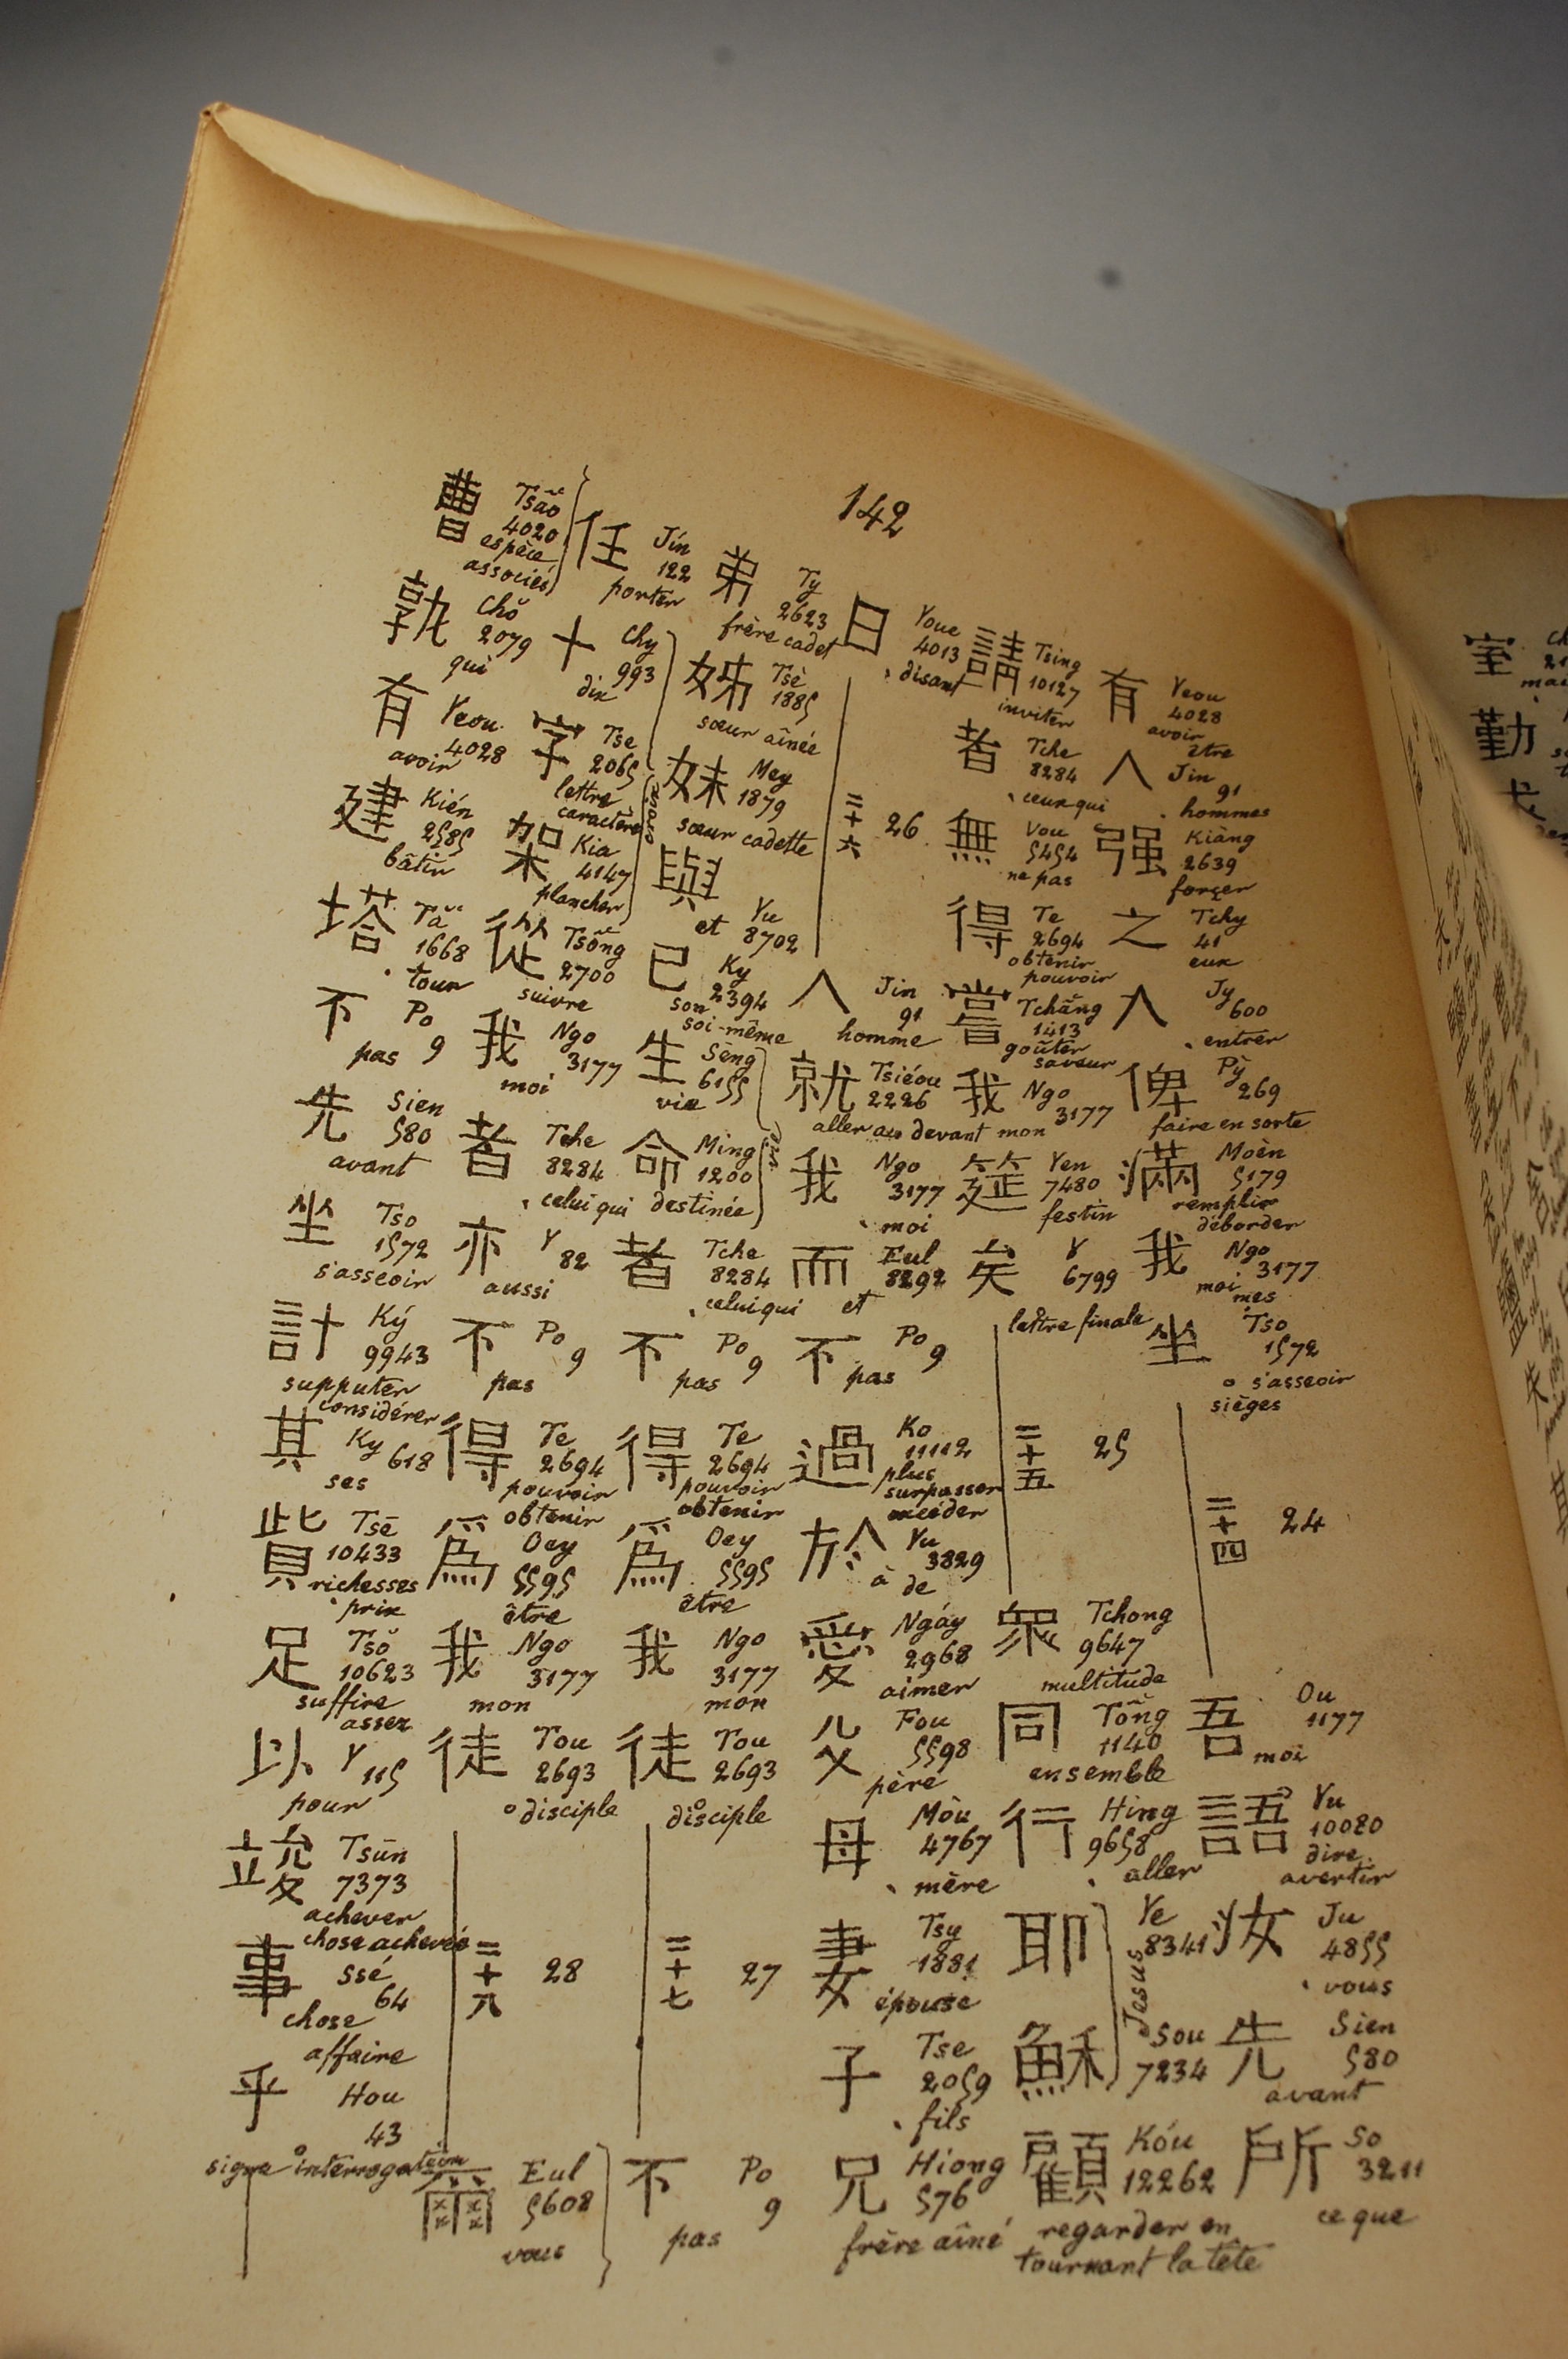 142
有 Yeou 4028 avoir être
人 Jin 91 hommes
强 Kiàng 2639 forçer
之 Tchy 41 eux
入 Jy 600 entrer
俾 Pỳ 269 faire en sorte
滿 Moèn 5179 remplir déborder
我 Ngo 3177 moi mes
坐 Tso 1572 s'asseoir sièges
二十四 24
吾 Ou 1177 moi
語 Yu 10080 dire avertir
汝 Ju 4855 vous
先 Sien 580 avant
所 So 3211 ce que
請 Tsing 10127 inviter
者 Tche 8284 ceux qui
無 Vou 5454 ne pas
得 Te 2694 obtenir pouvoir
嘗 Tchăng 1413 goûter saveur
我 Ngo 3177 mon
筵 Yen 7480 festin
矣 Y 6799 lettre finale
二十五 25
眾 Tchong 9647 multitude
同 Tŏng 1140 ensemble
行 Hing 9658 aller
耶 Ye 8341
穌 Sou 7234
Jesus
顧 Kóu 12262 regarder en tournant la tête
曰 Youe 4013 disant
二十六 26
人 Jin 91 homme
就 Tsiéou 2226 aller au devant
我 Ngo 3177 moi
而 Eul 8292 et
不 Po 9 pas
過 Ko 11112 plus surpasser excéder
於 Yu 3829 à de
愛 Ngáy 2968 aimer
父 Fou 5598 père
母 Mòu 4767 mère
妻 Tsy 1881 épouse
子 Tse 2059 fils
兄 Hiong 576 frère aîné
弟 Ty 2623 frère cadet
姊 Tsè 1885 sœur aînée
妹 Mey 1879 sœur cadette
與 Yu 8702 et
己 Ky 2394 son soi-même
生 Sēng 6155 vie
命 Ming 1200 destinée
者 Tche 8284 celui qui
不 Po 9 pas
得 Te 2694 pouvoir obtenir
爲 Oey 5595 être
我 Ngo 3177 mon
徒 Tou 2693 disciple
二十七 27
不 Po 9 pas
任 Jín 122 porter
十 Chy 993 dix
字 Tse 2065 lettre caractère
架 Kia 4147 plancher
croix
從 Tsŏng 2700 suivre
我 Ngo 3177 moi
者 Tche 8284 celui qui
亦 Y 82 aussi
不 Po 9 pas
得 Te 2694 pouvoir obtenir
爲 Oey 5595 être
我 Ngo 3177 mon
徒 Tou 2693 disciple
二十八 28
爾 Eul 5608 vous
曹 Tsăo 4020 espèce associés
孰 Chŏ 2079 qui
有 Yeou 4028 avoir
建 Kién 2585 bâtir
塔 Tă 1668 tour
不 Po 9 pas
先 Sien 580 avant
坐 Tso 1572 s'asseoir
計 Ký 9943 supputer considérer
其 Ky 618 ses
貲 Tsē 10433 richesses prix
足 Tsŏ 10623 suffire assez
以 Y 115 pour
竣 Tsūn 7373 achever chose achevée
事 Ssé 64 chose affaire
乎 Hou 43 signe interrogation